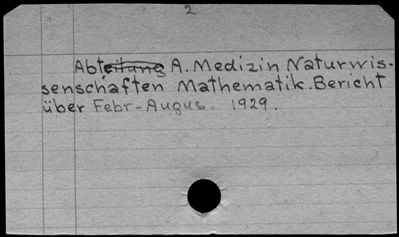 2
Abteilung A. Medizin Naturwis-
senschaften Mathematik. Bericht
über Febr-Augus. 1929.